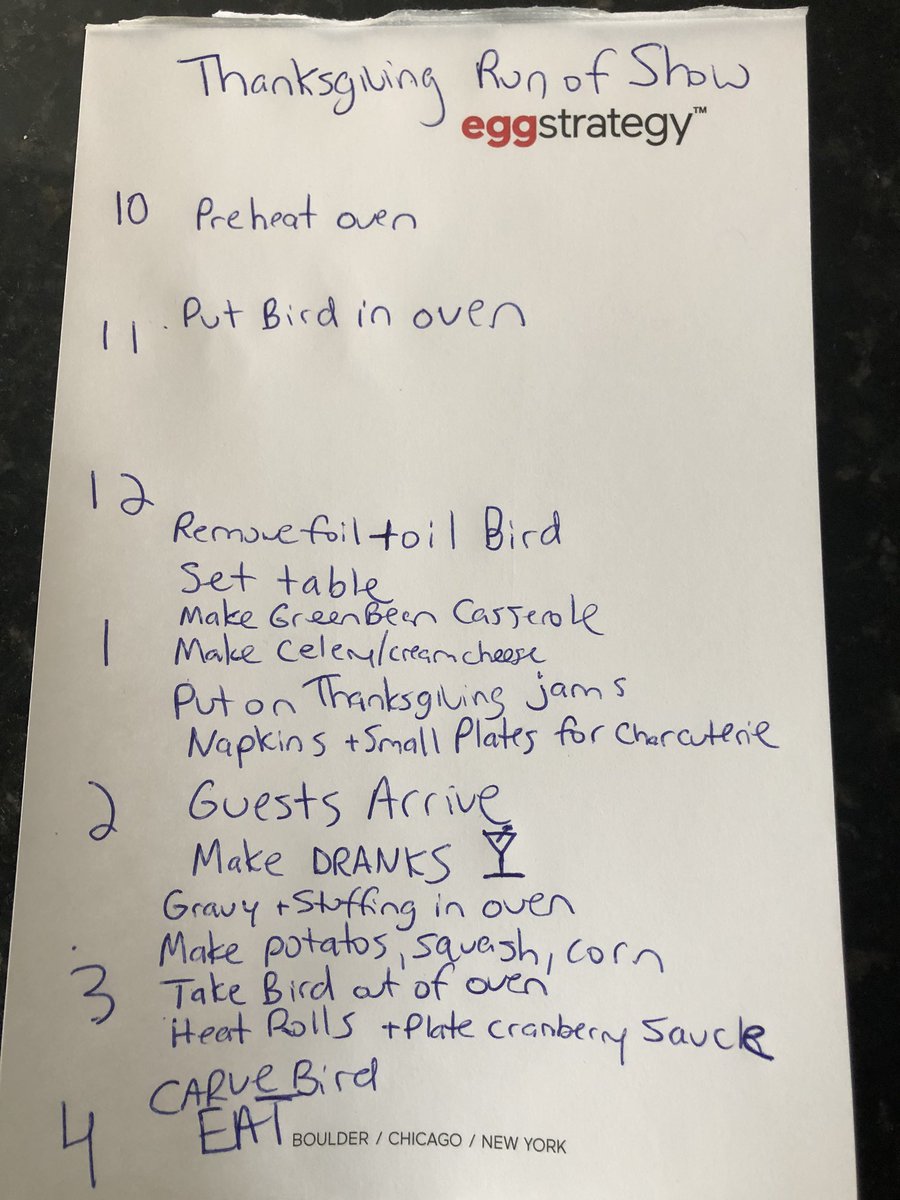 Thanksgiving Run of Show
eggstrategy™
10 Preheat oven
11 Put Bird in oven
12
Remove foil + oil Bird
Set table
Make Green Been Casserole
1 Make Celery/cream cheese
Put on Thanksgiving jams
Napkins + Small Plates for Charcuterie
2 Guests Arrive
Make DRANKS
Gravy + Stuffing in oven
Make potatos, squash, corn
3 Take Bird out of oven
Heat Rolls + Plate cranberry Sauce
CARVE Bird
4 EAT
BOULDER / CHICAGO / NEW YORK